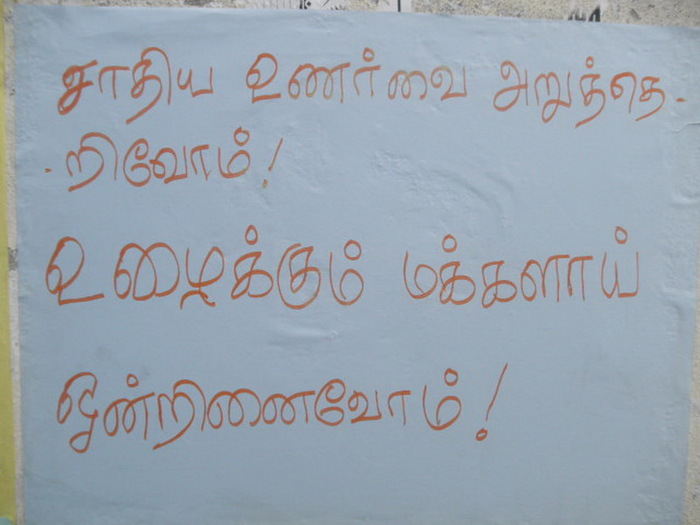 சாதிய உணர்வை அறுத்தெ-
-றிவோம்!
உழைக்கும் மக்களாய்
ஒன்றினைவோம்!